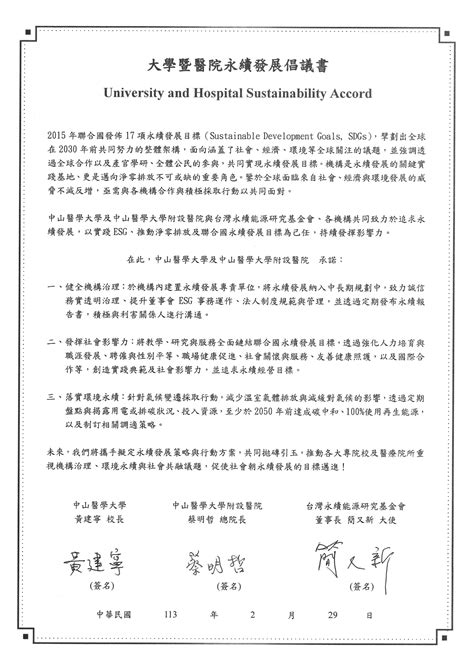 大學暨醫院永續發展倡議書
University and Hospital Sustainability Accord
2015 年聯合國發佈 17 項永續發展目標 (Sustainable Development Goals, SDGs)，擘劃出全球
在 2030 年前共同努力的整體架構，面向涵蓋了社會、經濟、環境等全球關注的議題，並強調透
過全球合作以及產官學研、全體公民的參與，共同實現永續發展目標。機構是永續發展的關鍵實
踐基地、更是邁向淨零排放不可或缺的重要角色。鑒於全球面臨來自社會、經濟與環境發展的威
脅不減反增，亟需與各機構合作與積極採取行動以共同面對。
中山醫學大學及中山醫學大學附設醫院與台灣永續能源研究基金會、各機構共同致力於追求永
續發展，以實踐 ESG、推動淨零排放及聯合國永續發展目標為己任，持續發揮影響力。
在此，中山醫學大學及中山醫學大學附設醫院 承諾：
一、健全機構治理：於機構內建置永續發展專責單位，將永續發展納入中長期規劃中，致力誠信
務實透明治理、提升董事會 ESG 事務運作、法人制度規範與管理，並透過定期發布永續報
告書，積極與利害關係人進行溝通。
二、發揮社會影響力：將教學、研究與服務全面鏈結聯合國永續發展目標，透過強化人力培育與
職涯發展、聘僱與性別平等、職場健康促進、社會關懷與服務、友善健康照護，以及國際合
作等，創造實踐典範及社會影響力，並追求永續經營目標。
三、落實環境永續：針對氣候變遷採取行動，減少溫室氣體排放與減緩對氣候的影響，透過定期
盤點與揭露用電或排碳狀況、投入資源，至少於 2050 年前達成碳中和、100%使用再生能源，
以及制訂相關調適策略。
未來，我們將攜手擬定永續發展策略與行動方案，共同拋磚引玉，推動各大專院校及醫療院所重
視機構治理、環境永續與社會共融議題，促使社會朝永續發展的目標邁進！
中山醫學大學 中山醫學大學附設醫院 台灣永續能源研究基金會
黃建寧 校長 蔡明哲 總院長 董事長 簡又新 大使
黃建寧 蔡明哲 簡又新
(簽名) (簽名) (簽名)
中華民國 113 年 2 月 29 日